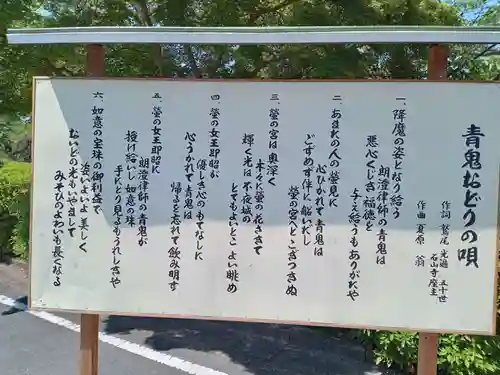 青鬼おどりの唄
作詞 鷲尾 光遍
五十世
石山寺座主
作曲 夏原 翁
一、降魔の姿となり給う
朗澄律師の青鬼は
悪心くじき福徳を
与え給うもありがたや
二、あまたの人の螢見に
心うかれて青鬼は
すごすす伴に船いだし
螢の宮へとこぎつきぬ
三、螢の宮は奥深く
木々に螢の花さきて
輝く光は不夜城の
とてもよいとこよい眺め
四、螢の女王即昭に
優しき心のもてなしに
心うかれて青鬼は
帰るを忘れて飲み明す
五、螢の女王即昭に
朗澄律師の青鬼が
授け給いし如意の珠
手にとり見るもうれしきや
六、如意の宝珠の御利益で
姿はいよいよ美しく
ないとの光もいやまして
みそひのよわいも長くなる